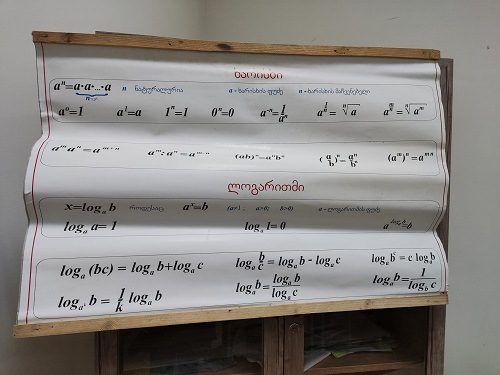 ხარისხი
aⁿ=a·a·...·a n ნატურალურია a - ხარისხის ფუძე n - ხარისხის მაჩვენებელი
a⁰=1 a¹=a 1ⁿ=1 0ⁿ=0 a⁻ⁿ=1/aⁿ a^(1/n)=ⁿ√a a^(m/n)=ⁿ√aᵐ
aᵐaⁿ=aᵐ⁺ⁿ aᵐ:aⁿ=aᵐ⁻ⁿ (ab)ⁿ=aⁿbⁿ (a/b)ⁿ=aⁿ/bⁿ (aᵐ)ⁿ=aᵐⁿ
ლოგარითმი
x=logₐb როდესაც aˣ=b (a≠1; a>0; b>0) a - ლოგარითმის ფუძე
logₐa=1 logₐ1=0 a^(logₐb)=b
logₐ(bc)=logₐb+logₐc logₐ b/c=logₐb-logₐc logₐbᶜ=c logₐb
b=1/k logₐb logₐb=log b/log c logₐb=1/log_b c